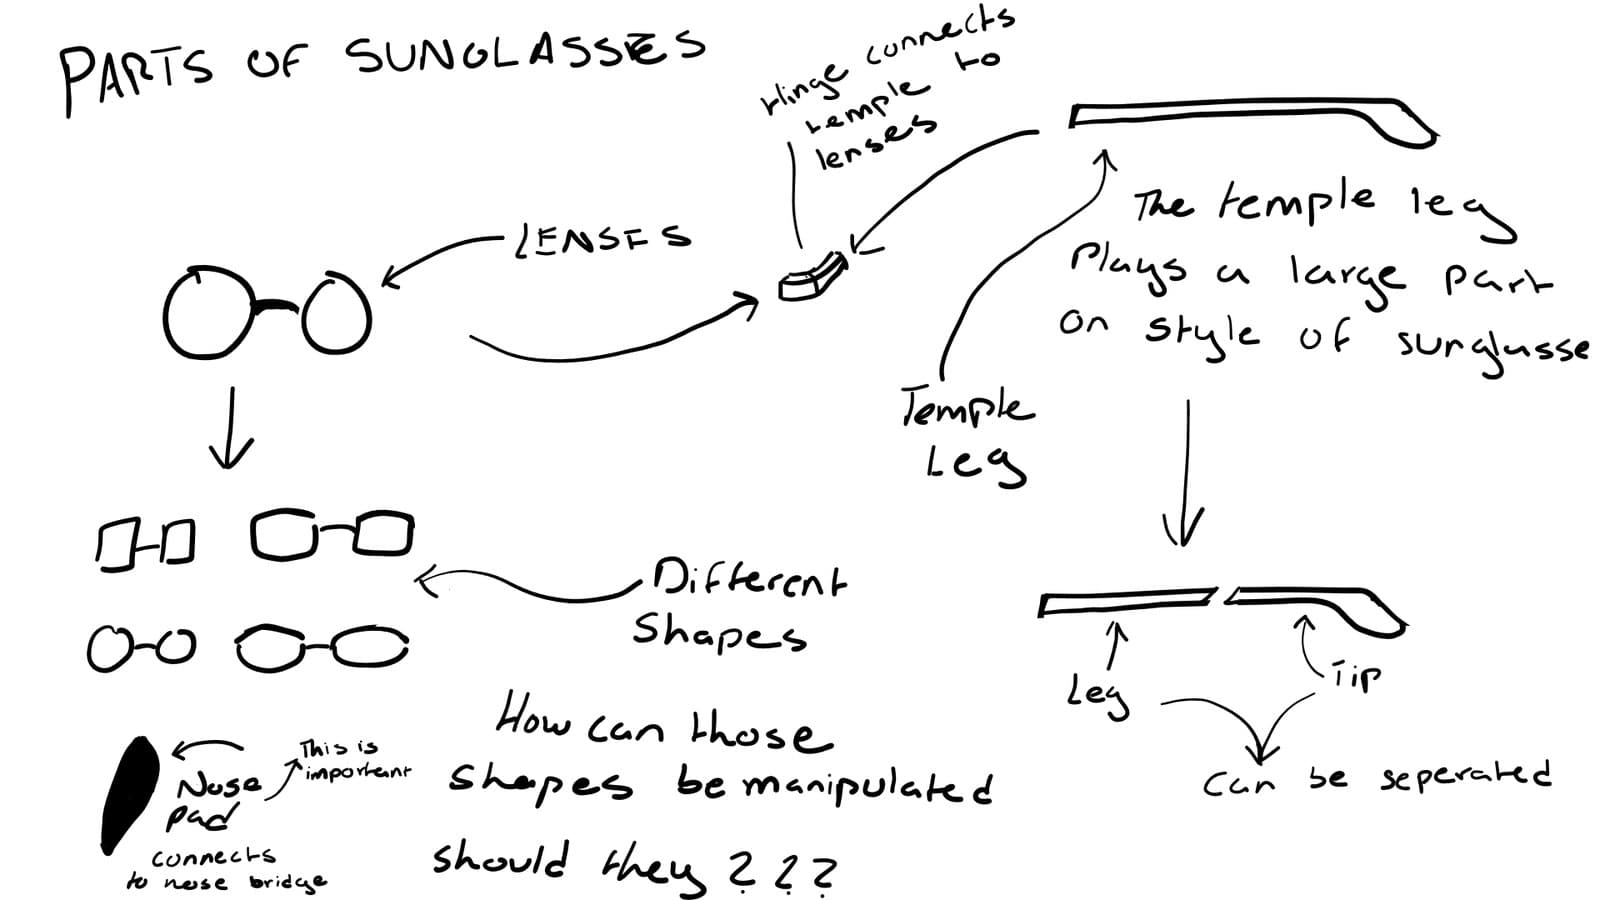 PARTS OF SUNGLASSES
Hinge connects
temple to
lenses
LENSES
The temple leg
Plays a large part
on style of sunglasse
Temple
Leg
Different
Shapes
Leg
Tip
can be seperated
How can those
shapes be manipulated
should they ???
This is
important
Nose
pad
connects
to nose bridge